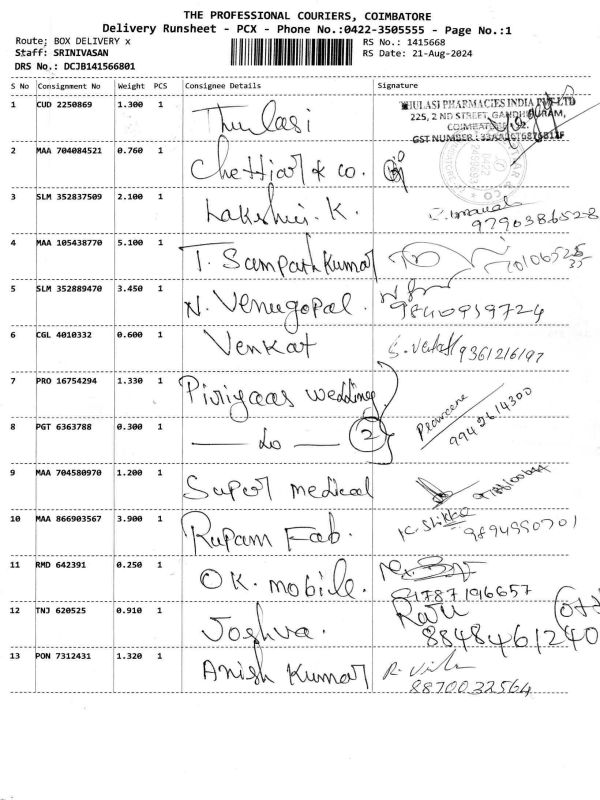 THE PROFESSIONAL COURIERS, COIMBATORE
Delivery Runsheet - PCX - Phone No.:0422-3505555 - Page No.:1
Route; BOX DELIVERY x
RS No.: 1415668
Staff: SRINIVASAN
RS Date: 21-Aug-2024
DRS No.: DCJB141566801
S No Consignment No Weight PCS Consignee Details Signature
1 CUD 2250869 1.300 1 Thulasi
THULASI PHARMACIES INDIA PVT LTD
225, 2 ND STREET, GANDHIPURAM,
COIMBATORE
GST NUMBER :
2 MAA 704084521 0.760 1 Chettiar & co.
3 SLM 352837509 2.100 1 Lakshmi. K.
9790386528
4 MAA 105438770 5.100 1 T. Sampath Kumar
5 SLM 352889470 3.450 1 N. Venugopal.
9840959724
6 CGL 4010332 0.600 1 Venkat
S. Venkat 9361216197
7 PRO 16754294 1.330 1 Piriyaas wedding
9942614300
8 PGT 6363788 0.300 1 — do — 2
9 MAA 704580970 1.200 1 Super medical
10 MAA 866903567 3.900 1 Rupam Fab.
9894990701
11 RMD 642391 0.250 1 OK. mobile.
81787196657
12 TNJ 620525 0.910 1 Joshva.
Raju
8848461240
13 PON 7312431 1.320 1 Anish Kumar
8870032564